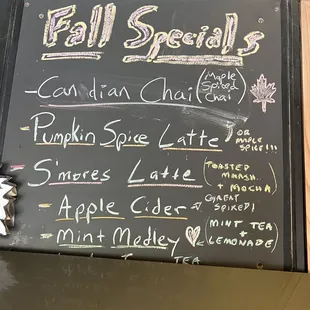 Fall Specials
- Candian Chai (Maple Spiced Chai)
- Pumpkin Spice Latte OR MAPLE SPICE!!!
- S'mores Latte (TOASTED MARSH. + MOCHA)
- Apple Cider GREAT SPIKED!
- Mint Medley (MINT TEA + LEMONADE)
TEA